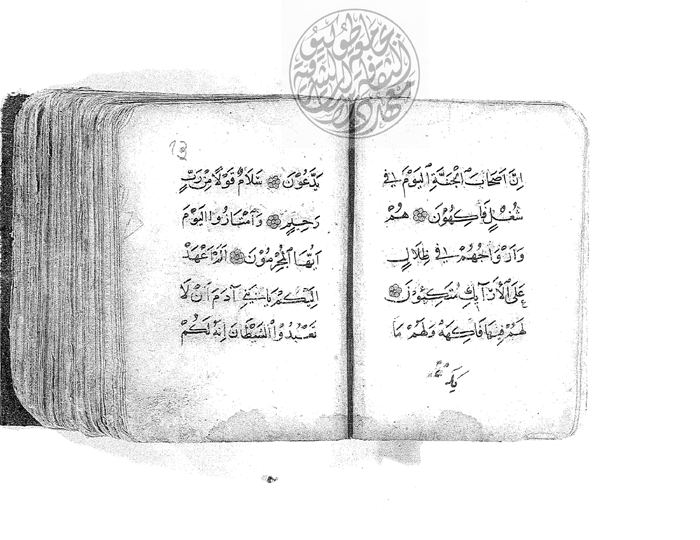 اِنَّ اَصْحَابَ الْجَنَّةِ الْيَوْمَ فِي
شُغُلٍ فَاكِهُونَ هُمْ
وَاَزْوَاجُهُمْ فِي ظِلَالٍ
عَلَى الْاَرَآئِكِ مُتَّكِئُونَ
لَهُمْ فِيهَا فَاكِهَةٌ وَلَهُمْ مَا
يَدَّعُونَ سَلَامٌ قَوْلًا مِنْ رَبٍّ
رَحِيمٍ وَامْتَازُوا الْيَوْمَ
اَيُّهَا الْمُجْرِمُونَ اَلَمْ اَعْهَدْ
اِلَيْكُمْ يَا بَنِي آدَمَ اَنْ لَا
تَعْبُدُوا الشَّيْطَانَ اِنَّهُ لَكُمْ